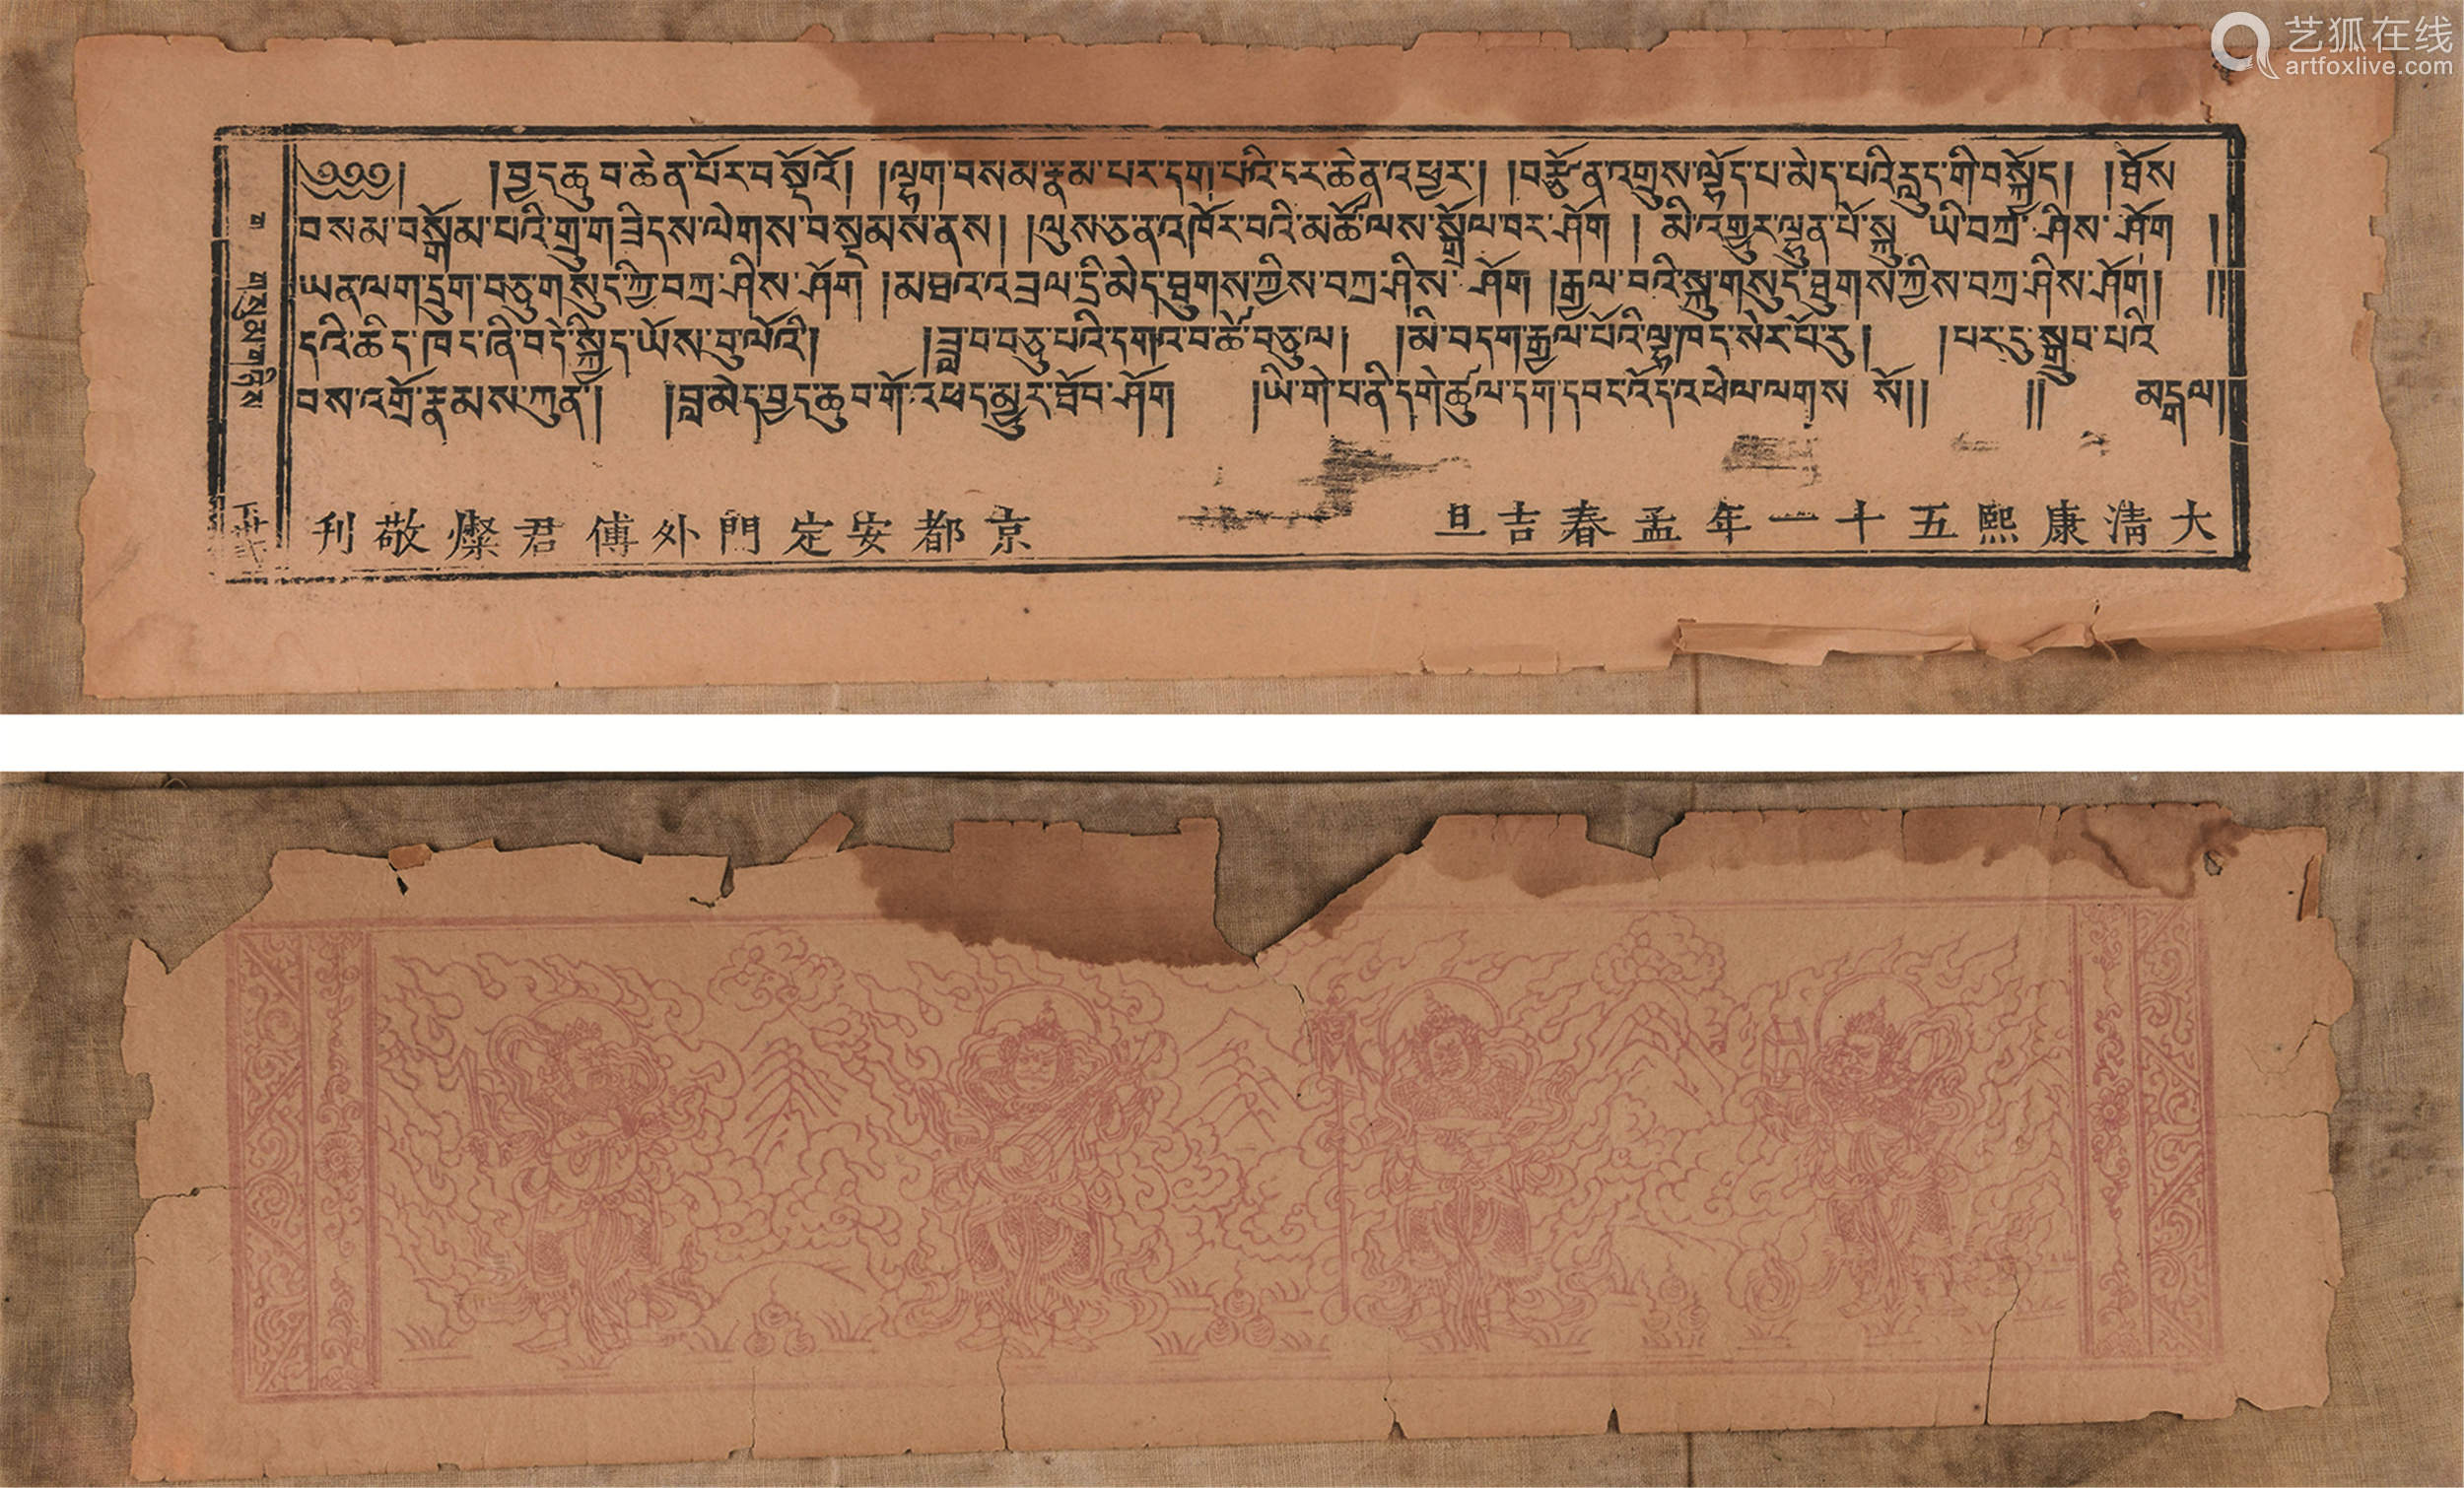 艺狐在线
artfoxlive.com
༄༅༅། །བྱང་ཆུབ་ཆེན་པོར་བསྔོའོ། །ལྷག་བསམ་རྣམ་པར་དག་པའི་དར་ཆེན་འཕྱར། །བརྩོན་འགྲུས་ལྷོད་པ་མེད་པའི་རླུང་གི་བསྐྱོད། །ཐོས་
བསམ་བསྒོམ་པའི་གྲུ་གཟིངས་ལེགས་བསྡམས་ནས། །ལུས་ཅན་འཁོར་བའི་མཚོ་ལས་སྒྲོལ་བར་ཤོག །མི་འགྱུར་ལྷུན་པོ་སྐུ་ཡི་བཀྲ་ཤིས་ཤོག །
ཡན་ལག་དྲུག་བཅུ་གསུང་ཀྱི་བཀྲ་ཤིས་ཤོག །མཐའ་འབྲལ་དྲི་མེད་ཐུགས་ཀྱིས་བཀྲ་ཤིས་ཤོག །རྒྱལ་བའི་སྐུ་གསུང་ཐུགས་ཀྱིས་བཀྲ་ཤིས་ཤོག། །།
དའི་ཆིང་ཁང་ཞི་བདེ་སྐྱིད་ཡོས་བུ་ལོའི། །ཟླ་བ་བཅུ་པའི་དགའ་བ་ཚེ་བཅུ་ལ། །མི་བདག་རྒྱལ་པོའི་ལྷ་ཁང་སེར་པོ་རུ། །པར་དུ་སྒྲུབ་པའི་
བས་འགྲོ་རྣམས་ཀུན་ོ། །བླ་མེད་བྱང་ཆུབ་གོ་འཕང་མྱུར་ཐོབ་ཤོག །ཡི་གེ་པ་ནི་དགེ་ཚུལ་ངག་དབང་འོད་འཕེལ་ལགས་སོ།། །། མངྒལ།
大清康熙五十一年孟春吉旦
京都安定門外傅君燦敬刊